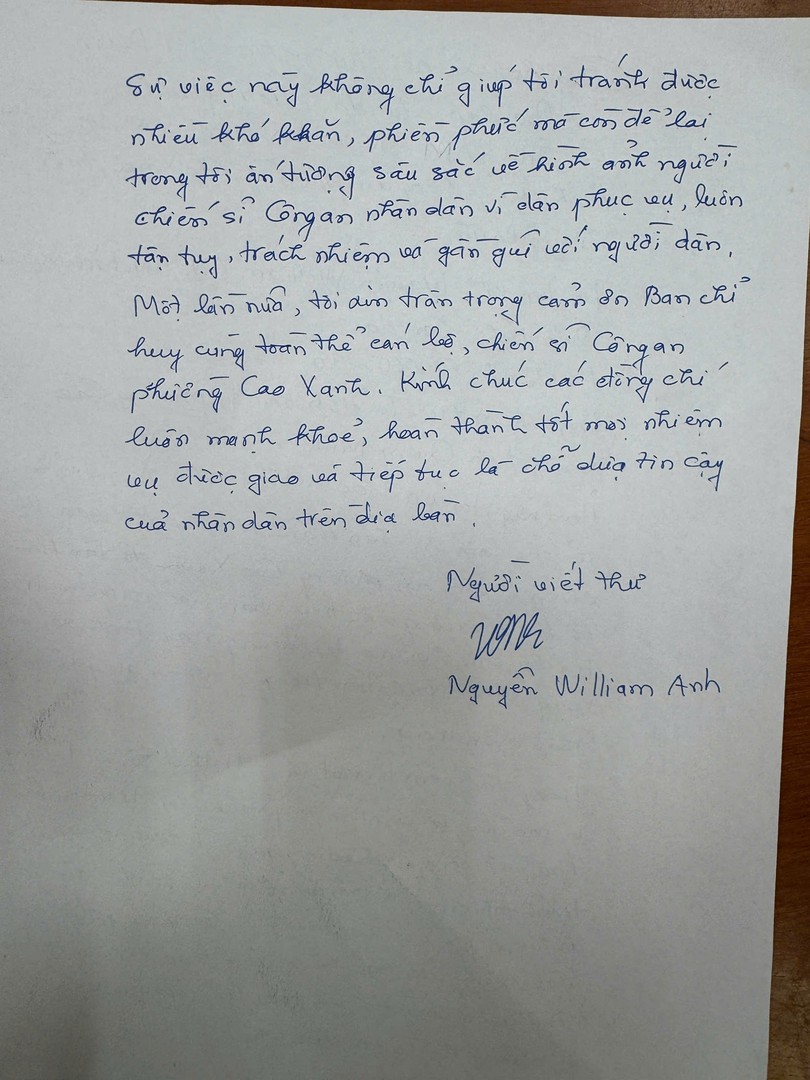 Sự việc này không chỉ giúp tôi tránh được
nhiều khó khăn, phiền phức mà còn để lại
trong tôi ấn tượng sâu sắc về hình ảnh người
chiến sĩ Công an nhân dân vì dân phục vụ, luôn
tận tụy, trách nhiệm và gần gũi với người dân.
Một lần nữa, tôi xin trân trọng cảm ơn Ban chỉ
huy cùng toàn thể cán bộ, chiến sĩ Công an
phường Cao Xanh. Kính chúc các đồng chí
luôn mạnh khoẻ, hoàn thành tốt mọi nhiệm
vụ được giao và tiếp tục là chỗ dựa tin cậy
của nhân dân trên địa bàn.
Người viết thư
Nguyễn William Anh